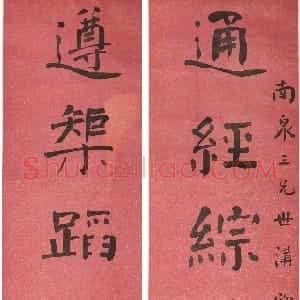 通經綜
南泉三兄世講
遵榘蹈
Shuhaziliao.com